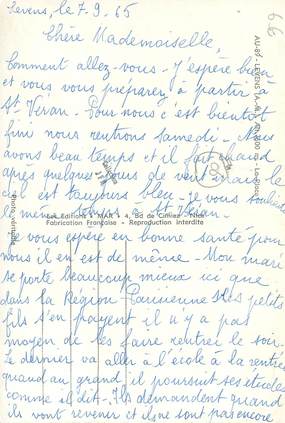 Levens, le 7.9.65
Chère Mademoiselle,
Comment allez-vous. J'espère bien
et vous vous préparez à partir à
St Véran. Pour nous c'est bientôt
fini nous rentrons samedi. Nous
avons beau temps et il fait chaud
après quelques jours de vent mais le
ciel est toujours bleu. je vous souhaite
le même temps à St Véran.
Les Editions "MAR" 4, Bd de Cimiez - Nice
Fabrication Française - Reproduction Interdite
Je vous espère en bonne santé pour
nous il en est de même. Mon mari
se porte beaucoup mieux ici que
dans la Région Parisienne. Les petits
fils s'en payent il n'y a pas
moyen de les faire rentrer le soir.
Le dernier va aller à l'école à la rentrée
quand au grand, il poursuit ses études
comme il dit. Ils demandent quand
ils vont revenir et ils ne sont pas encore
66